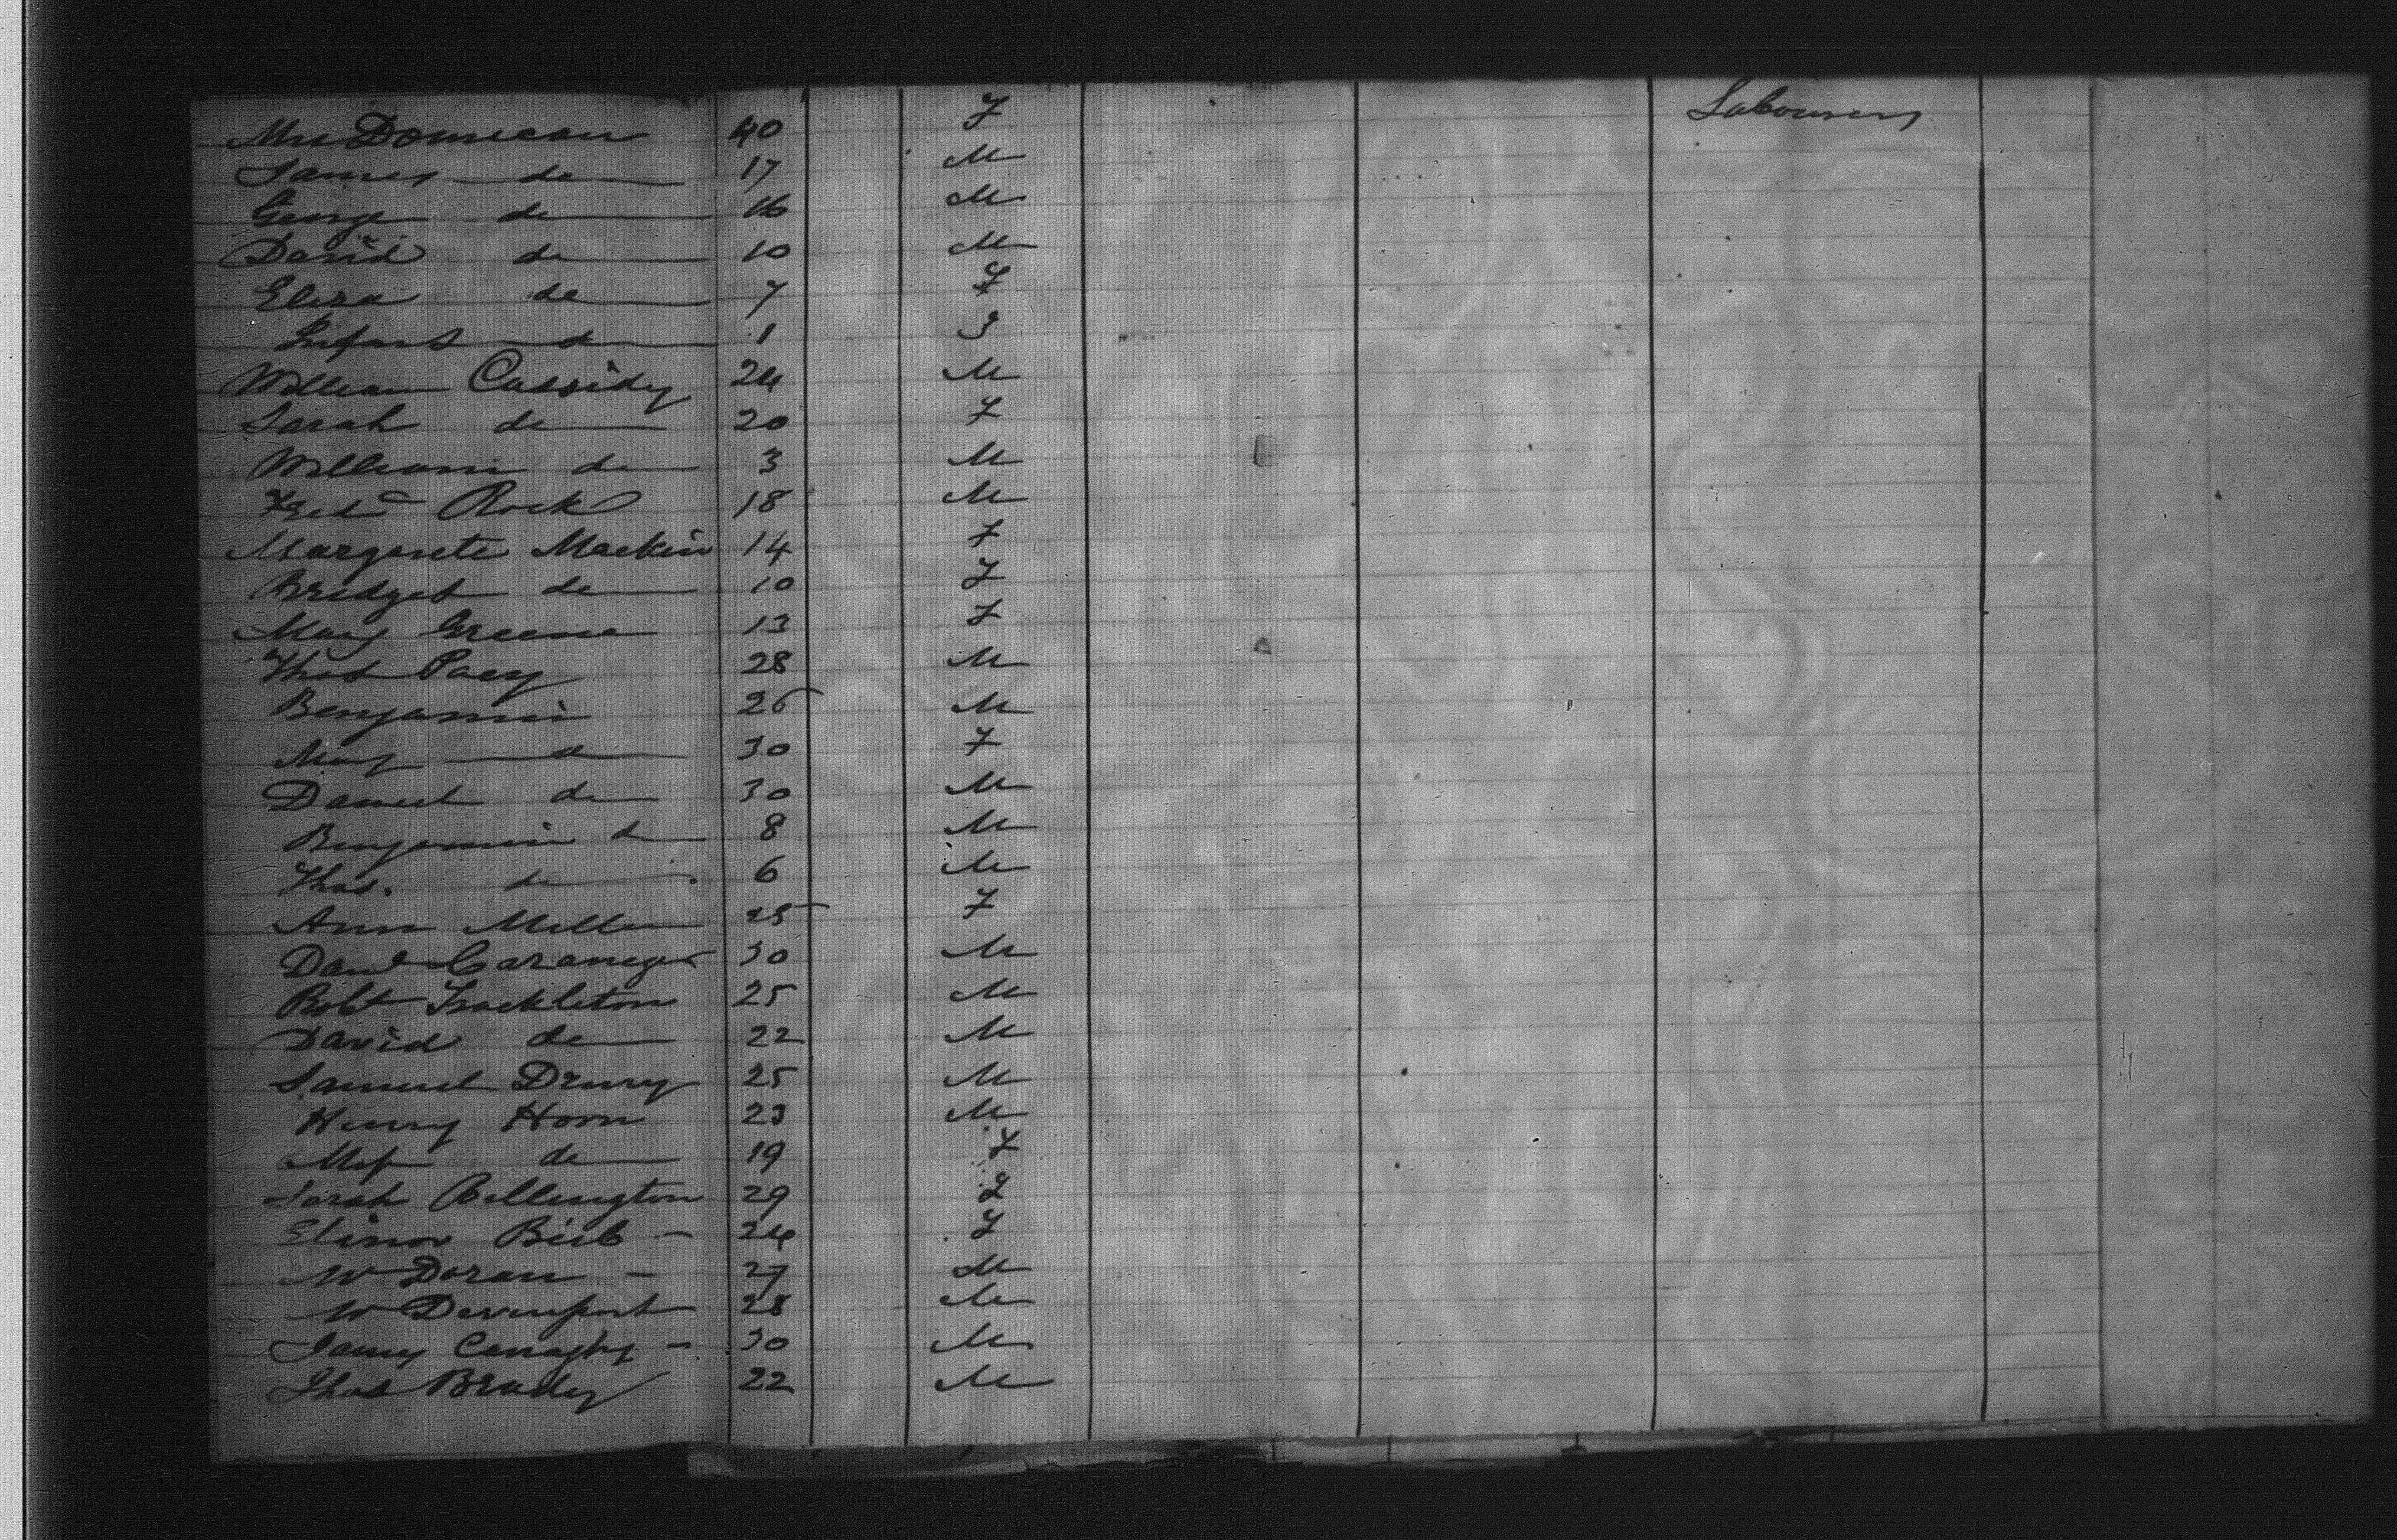 Mrs Donnecan 40 F Labourers
James do 17 M
George do 16 M
David do 10 M
Eliza do 7 F
Infant do 1 F
William Cassidy 24 M
Sarah do 20 F
William do 3 M
Fred Rock 18 M
Margarete Mackin 14 F
Bridget do 10 F
Mary Greene 13 F
Thos Pacy 28 M
Benjamin 26 M
Mary do 30 F
Daniel do 30 M
Benjamin do 8 M
Thos. do 6 M
Ann Miller 25 F
Danl 30 M
Robt 25 M
David do 22 M
Samuel Drury 25 M
Henry Horn 23 M
do 19 F
Sarah Billington 29 F
Elinor 24 F
W Doran 27 M
W Devenport 28 M
James 30 M
Thos Brady 22 M